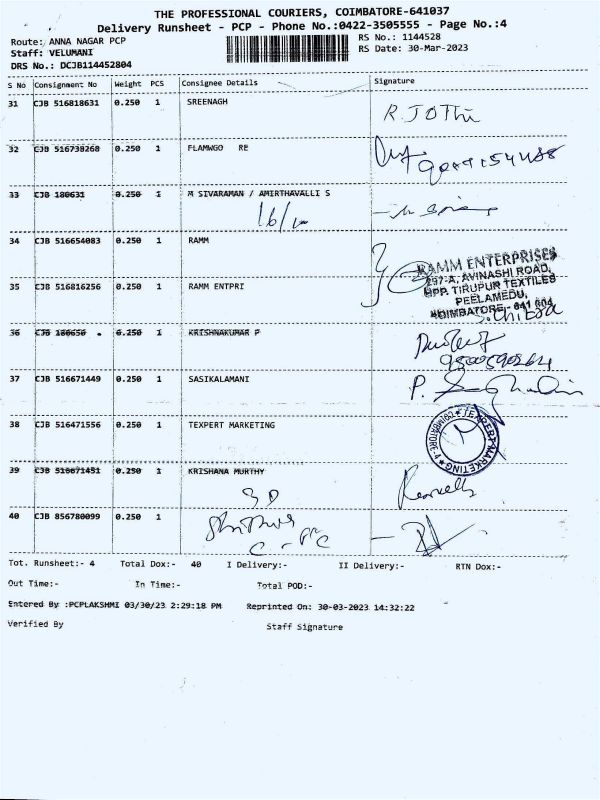 THE PROFESSIONAL COURIERS, COIMBATORE-641037
Delivery Runsheet - PCP - Phone No.:0422-3505555 - Page No.:4
Route: ANNA NAGAR PCP
RS No.: 1144528
Staff: VELUMANI
RS Date: 30-Mar-2023
DRS No.: DCJB114452804
S No Consignment No Weight PCS Consignee Details Signature
31 CJB 516818631 0.250 1 SREENAGH
R. JOTHI
32 CJB 516738268 0.250 1 FLAMWGO RE
33 CJB 180631 0.250 1 M SIVARAMAN / AMIRTHAVALLI S
34 CJB 516654083 0.250 1 RAMM
RAMM ENTERPRISES
297-A, AVINASHI ROAD,
OPP. TIRUPUR TEXTILES
PEELAMEDU,
COIMBATORE - 641 004
35 CJB 516816256 0.250 1 RAMM ENTPRI
S. Chitra
36 CJB 180650 0.250 1 KRISHNAKUMAR P
37 CJB 516671449 0.250 1 SASIKALAMANI
P.
38 CJB 516471556 0.250 1 TEXPERT MARKETING
TEXPERT MARKETING COIMBATORE
39 CJB 516671451 0.250 1 KRISHANA MURTHY
40 CJB 856780099 0.250 1
Tot. Runsheet:- 4 Total Dox:- 40 I Delivery:- II Delivery:- RTN Dox:-
Out Time:- In Time:- Total POD:-
Entered By :PCPLAKSHMI 03/30/23 2:29:18 PM Reprinted On: 30-03-2023 14:32:22
Verified By Staff Signature